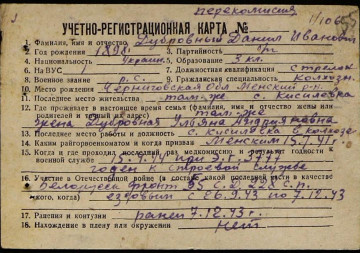 перекомиссия
1/1066
УЧЕТНО-РЕГИСТРАЦИОННАЯ КАРТА №
1. Фамилия, имя и отчество Дубровный Данил Иванович
2. Год рождения 1898 3. Партийность б/п
4. Национальность Украин. 5. Образование 3 кл.
6. На ВУС 7. Должностная квалификация Стрелок
8. Военное звание р.с. 9. Гражданская специальность Колхозн.
10. Место рождения Черниговская Обл Менский р-н
11. Последнее место жительства там-же с. Кисилевка
12. Где проживает в настоящее время семья (фамилия, имя и отчество жены или
родителей и точный их адрес) там же
Жена Дубровная Ульяна Андреявна
13. Последнее место работы и должность с. Кисилевка в колхозе
14. Каким райгорвоенкоматом и когда призван Менским 15.7.41
15. Когда и где проходил последний раз медкомиссию и результат годности к
военной службе 15.7.41 при
годен к строевой службе
16. Участие в Отечественной войне (в составе какой последней части в качестве
Белорусс фронт 55 С.Д. 228 С.П.
кого, когда) ездовым с 26.9.43 по 7.12.43
17. Ранения и контузии ранен 7.12.43 г.
18. Нахождение в плену или окружении Нет